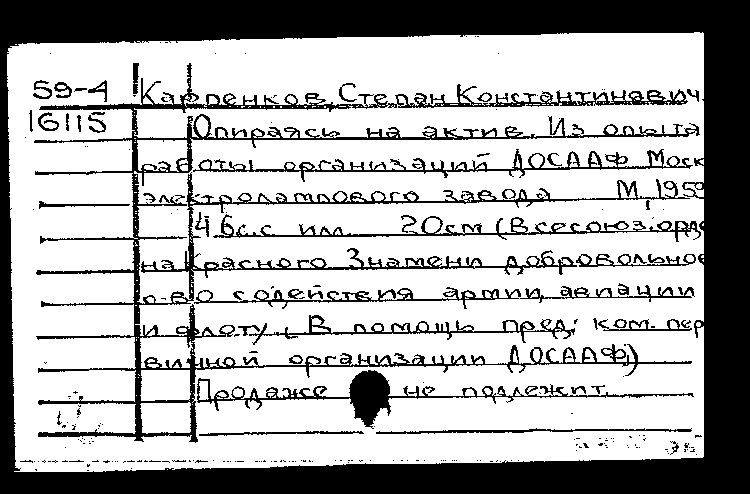 59-4 Карпенков, Степан Константинович.
16115 Опираясь на актив. Из опыта
работы организаций ДОСААФ Моск
электролампового завода М, 1959
46с.с илл. 20см (Всесоюз. орде
на Красного Знамени добровольное
о-во содействия армии, авиации
и флоту. (В помощь пред. ком. пер
вичной организации ДОСААФ)
Продаже не подлежит.